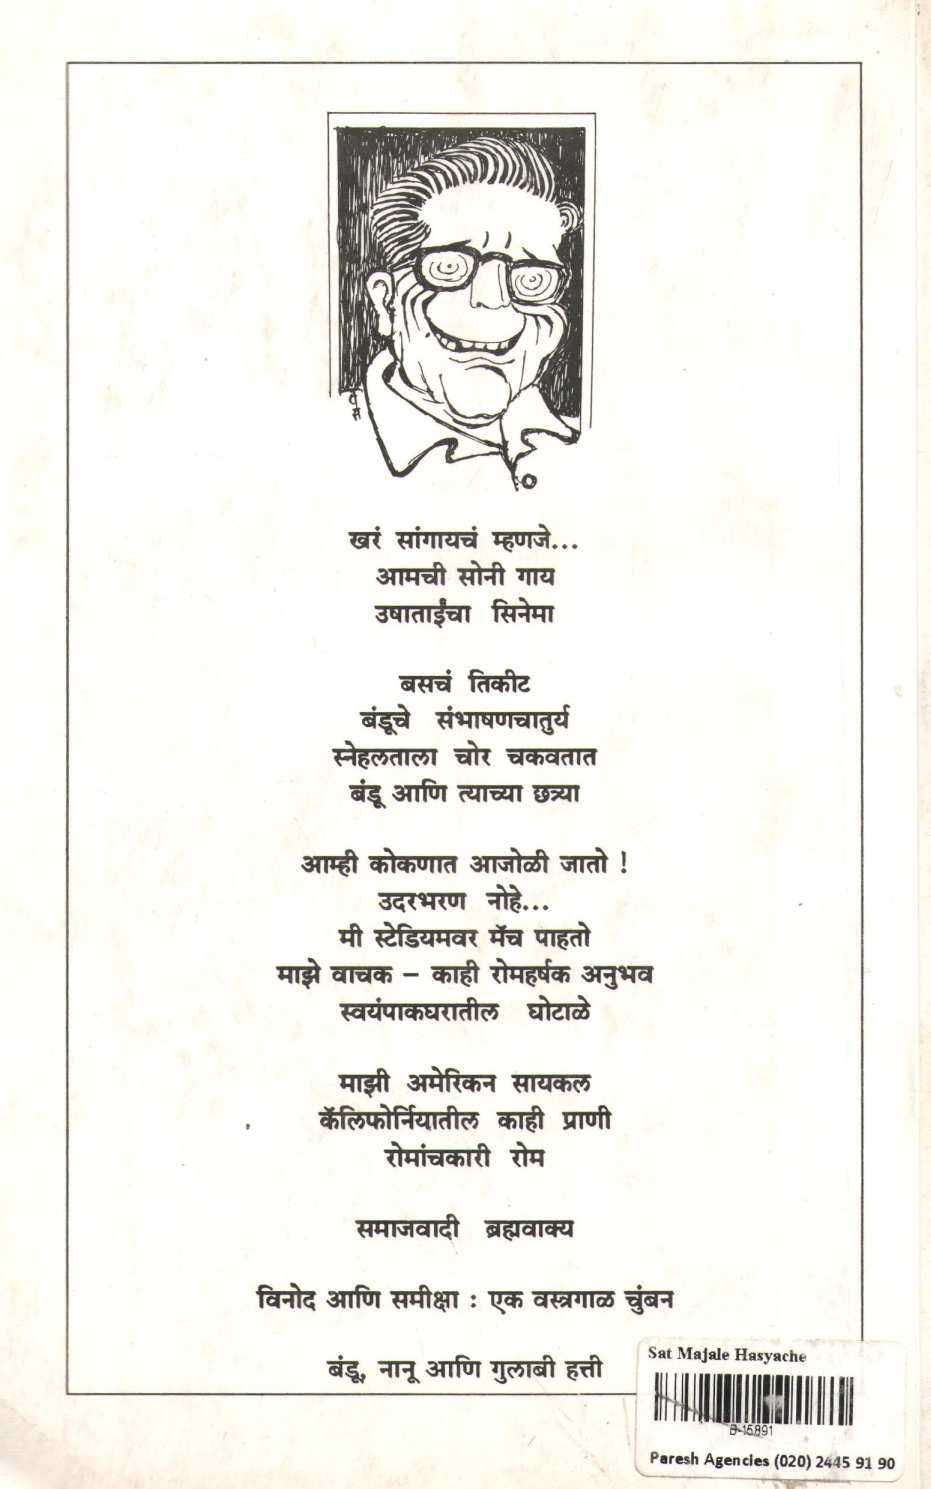 वस
खरं सांगायचं म्हणजे...
आमची सोनी गाय
उषाताईंचा सिनेमा
बसचं तिकीट
बंडूचे संभाषणचातुर्य
स्नेहलताला चोर चकवतात
बंडू आणि त्याच्या छत्र्या
आम्ही कोकणात आजोळी जातो !
उदरभरण नोहे...
मी स्टेडियमवर मॅच पाहतो
माझे वाचक – काही रोमहर्षक अनुभव
स्वयंपाकघरातील घोटाळे
माझी अमेरिकन सायकल
कॅलिफोर्नियातील काही प्राणी
रोमांचकारी रोम
समाजवादी ब्रह्मवाक्य
विनोद आणि समीक्षा : एक वस्त्रगाळ चुंबन
बंडू, नानू आणि गुलाबी हत्ती
Sat Majale Hasyache
B-15891
Paresh Agencies (020) 2445 91 90